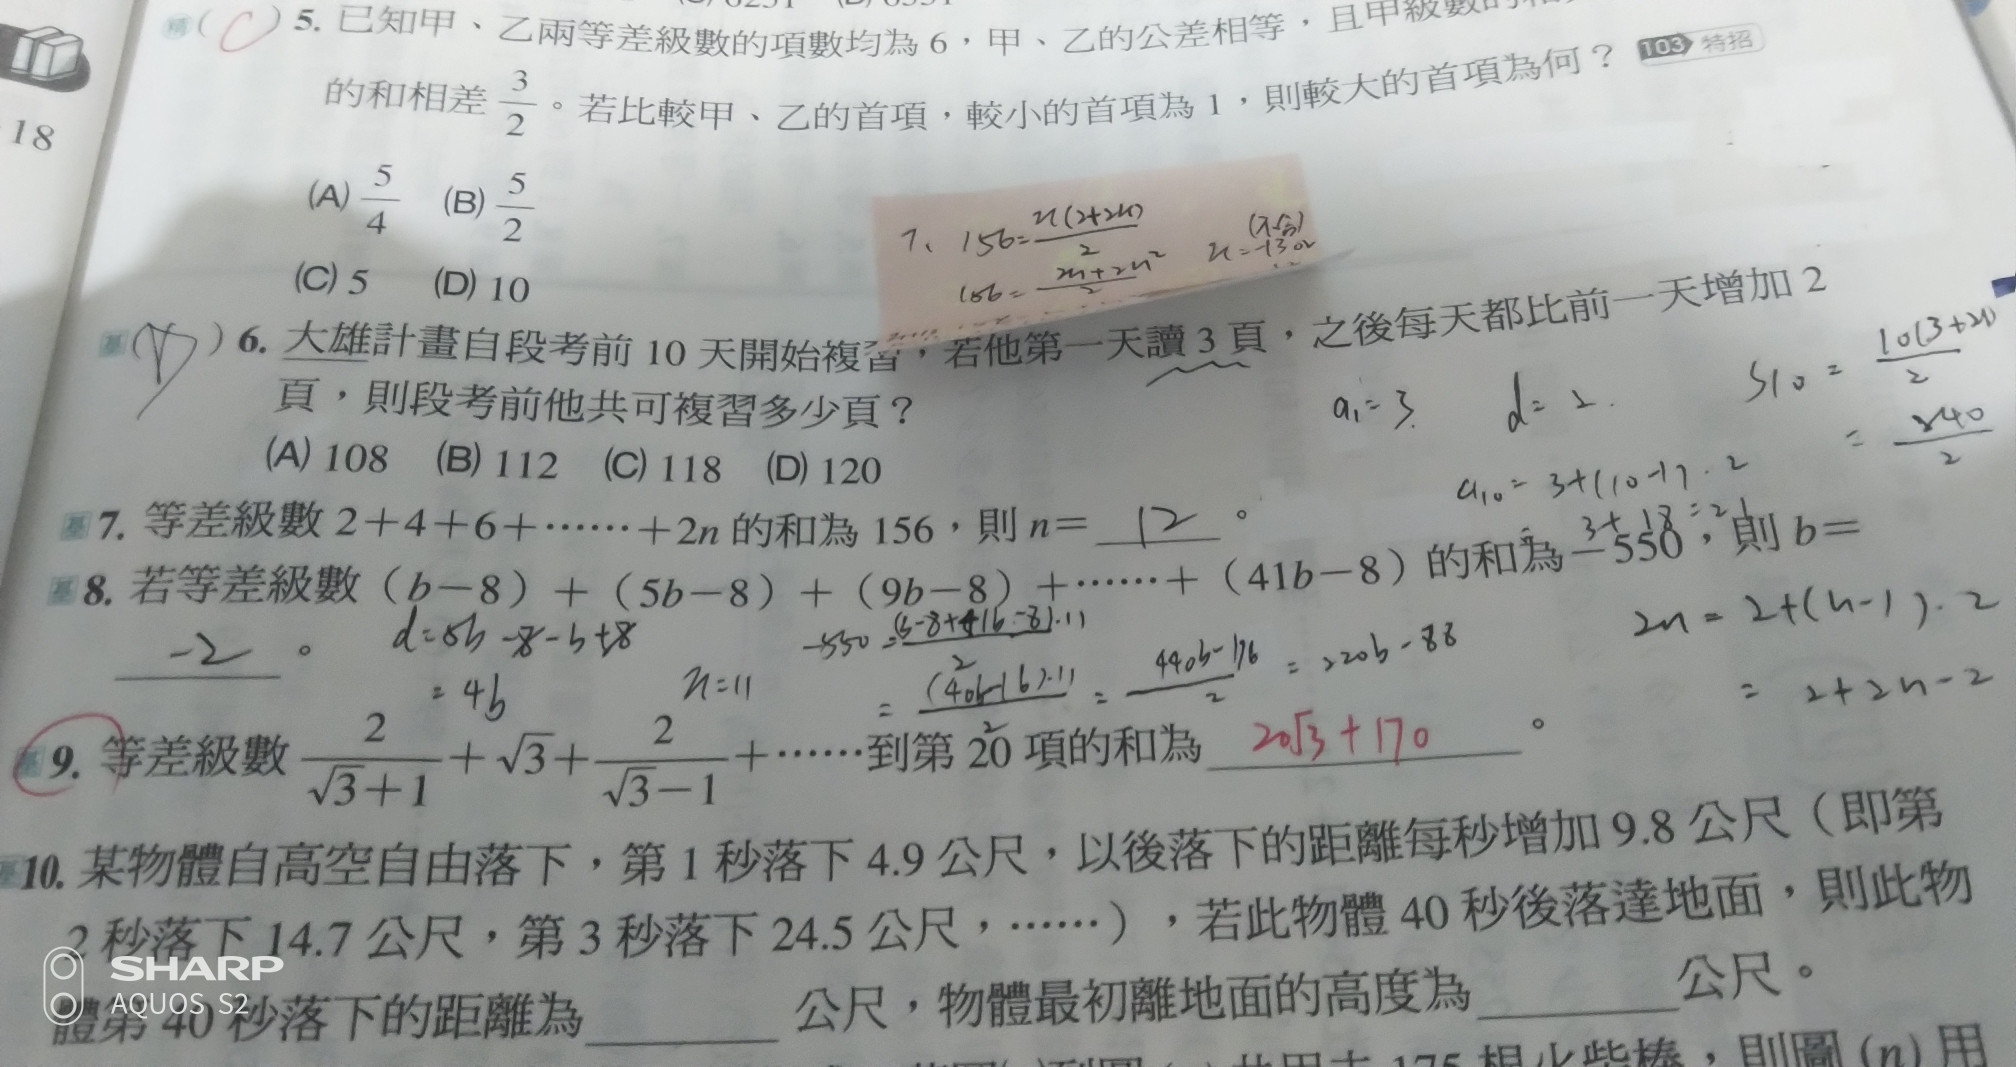 5. 已知甲、乙兩等差級數的項數均為 6，甲、乙的公差相等，且甲級數
的和相差 3/2 。若比較甲、乙的首項，較小的首項為 1，則較大的首項為何？ 103 特招
(C)
18
(A) 5/4 (B) 5/2
(C) 5 (D) 10
7、156=n(2+2n)/2
156=2n+2n²/2
(不合)
n=-13 or
基 6. 大雄計畫自段考前 10 天開始複習，若他第一天讀 3 頁，之後每天都比前一天增加 2
頁，則段考前他共可複習多少頁？
(A) 108 (B) 112 (C) 118 (D) 120
a₁=3 d=2.
S10=10(3+21)/2
=240/2
a₁₀=3+(10-1)·2
=3+18=21
基 7. 等差級數 2+4+6+……+2n 的和為 156，則 n= 12 。
基 8. 若等差級數（b-8）+（5b-8）+（9b-8）+……+（41b-8）的和為-550，則 b=
-2 。
d=5b-8-b+8
=4b
n=11
-550=(b-8+41b-8)·11/2
=(40b-16)·11/2=440b-176/2=220b-88
2n=2+(n-1)·2
=2+2n-2
基 9. 等差級數 2/(√3+1)+√3+2/(√3-1)+……到第 20 項的和為 20√3+170 。
基 10. 某物體自高空自由落下，第 1 秒落下 4.9 公尺，以後落下的距離每秒增加 9.8 公尺（即第
2 秒落下 14.7 公尺，第 3 秒落下 24.5 公尺，……），若此物體 40 秒後落達地面，則此物
體第 40 秒落下的距離為 公尺，物體最初離地面的高度為 公尺。
175 根火柴棒，則圖 (n) 用
SHARP
AQUOS S2